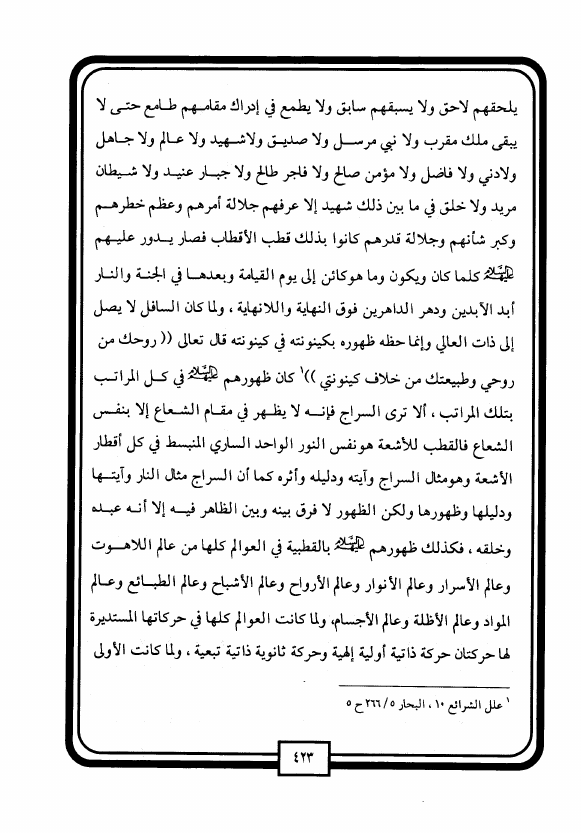 يلحقهم لاحق ولا يسبقهم سابق ولا يطمع في إدراك مقامهم طامع حتى لا
يبقى ملك مقرب ولا نبي مرسل ولا صديق ولاشهيد ولا عالم ولا جاهل
ولادني ولا فاضل ولا مؤمن صالح ولا فاجر طالح ولا جبار عنيد ولا شيطان
مريد ولا خلق في ما بين ذلك شهيد إلا عرفهم جلالة أمرهم وعظم خطرهم
وكبر شأنهم وجلالة قدرهم كانوا بذلك قطب الأقطاب فصار يدور عليهم
عليهم السلام كلما كان ويكون وما هوكائن إلى يوم القيامة وبعدها في الجنة والنار
أبد الآبدين ودهر الداهرين فوق النهاية واللانهاية ، ولما كان السافل لا يصل
إلى ذات العالي وإنما حظه ظهوره بكينونته في كينونته قال تعالى (( روحك من
روحي وطبيعتك من خلاف كينونتي ))١ كان ظهورهم عليهم السلام في كل المراتب
بتلك المراتب ، ألا ترى السراج فإنه لا يظهر في مقام الشعاع إلا بنفس
الشعاع فالقطب للأشعة هونفس النور الواحد الساري المنبسط في كل أقطار
الأشعة وهومثال السراج وآيته ودليله وأثره كما أن السراج مثال النار وآيتها
ودليلها وظهورها ولكن الظهور لا فرق بينه وبين الظاهر فيه إلا أنه عبده
وخلقه ، فكذلك ظهورهم عليهم السلام بالقطبية في العوالم كلها من عالم اللاهوت
وعالم الأسرار وعالم الأنوار وعالم الأرواح وعالم الأشباح وعالم الطبائع وعالم
المواد وعالم الأظلة وعالم الأجسام، ولما كانت العوالم كلها في حركاتها المستديرة
لها حركتان حركة ذاتية أولية إلهية وحركة ثانوية ذاتية تبعية ، ولما كانت الأولى
١ علل الشرائع ١٠ ، البحار ٥/ ٢٦٦ ح ٥
٤٢٣